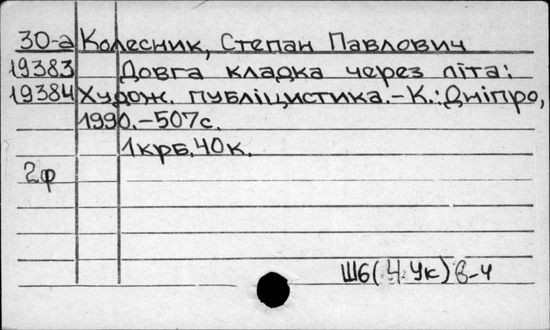 30-а Колесник, Степан Павлович
19383 Довга кладка через літа:
19384 Худож. публіцистика.-К.:Дніпро,
1990.-507с.
1крб.40к.
2ф
Ш6(4Ук)6-4